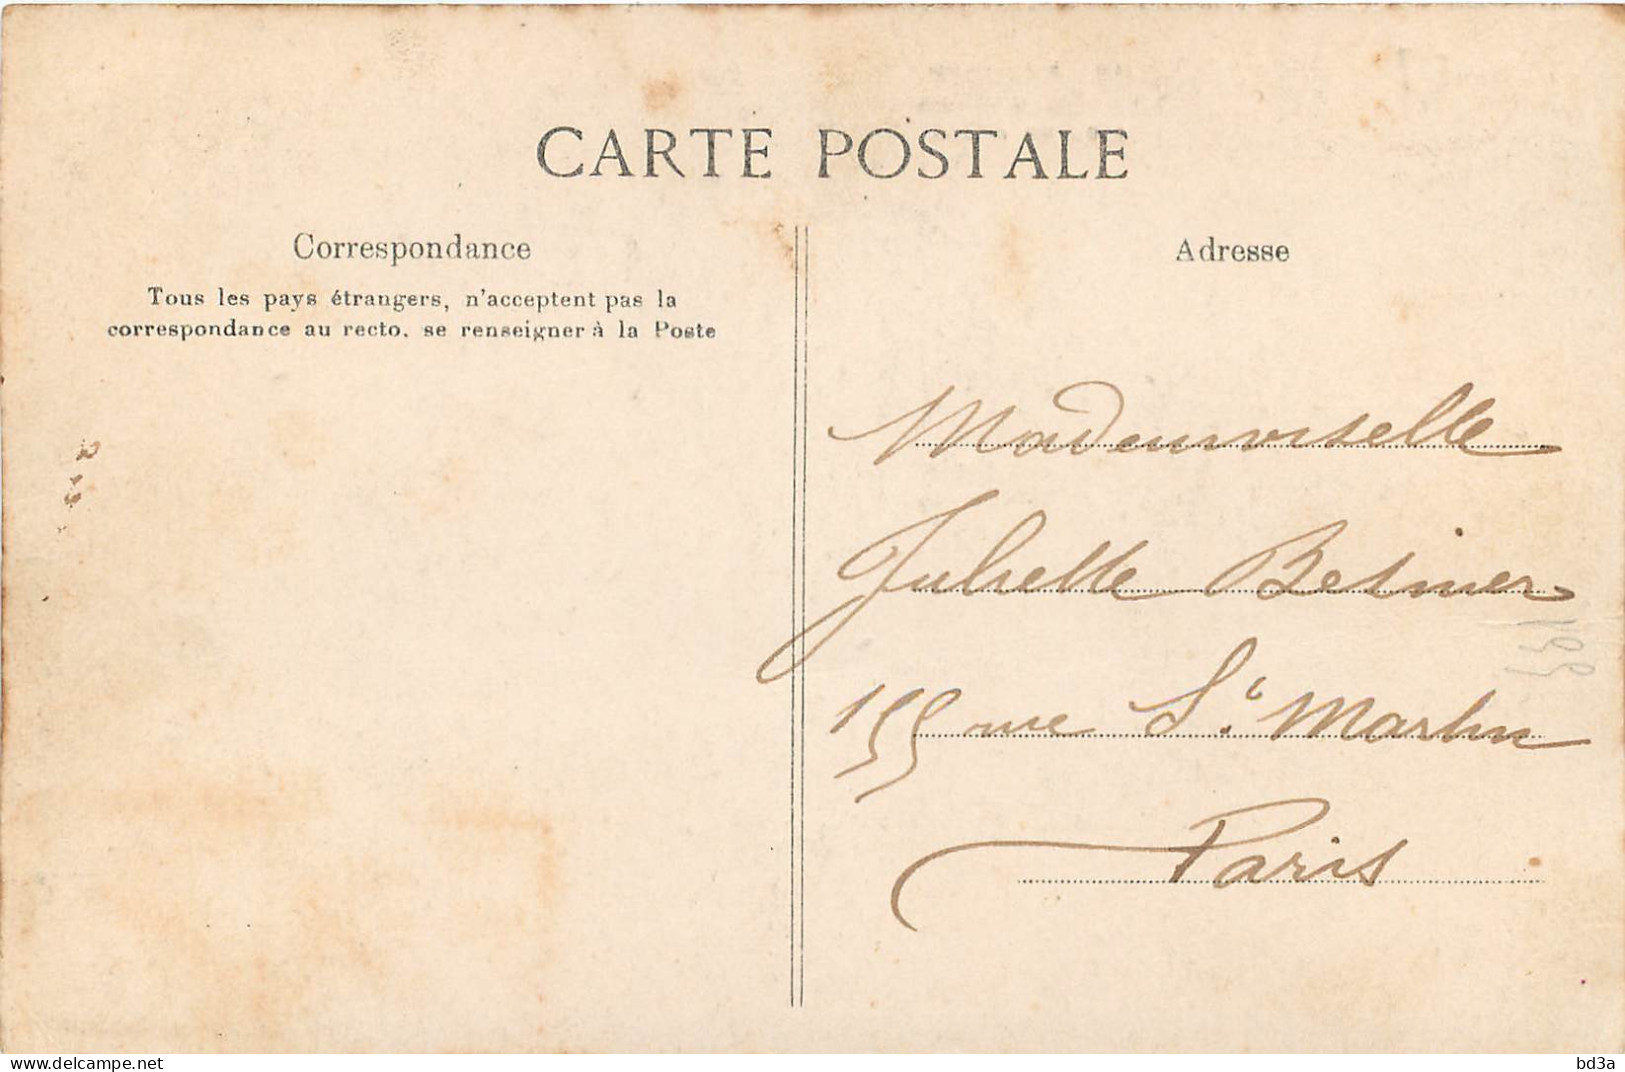 CARTE POSTALE
Correspondance
Tous les pays étrangers, n'acceptent pas la
correspondance au recto. se renseigner à la Poste
Adresse
Mademoiselle
Juliette
155 rue St. Martin
Paris
www.delcampe.net
bd3a